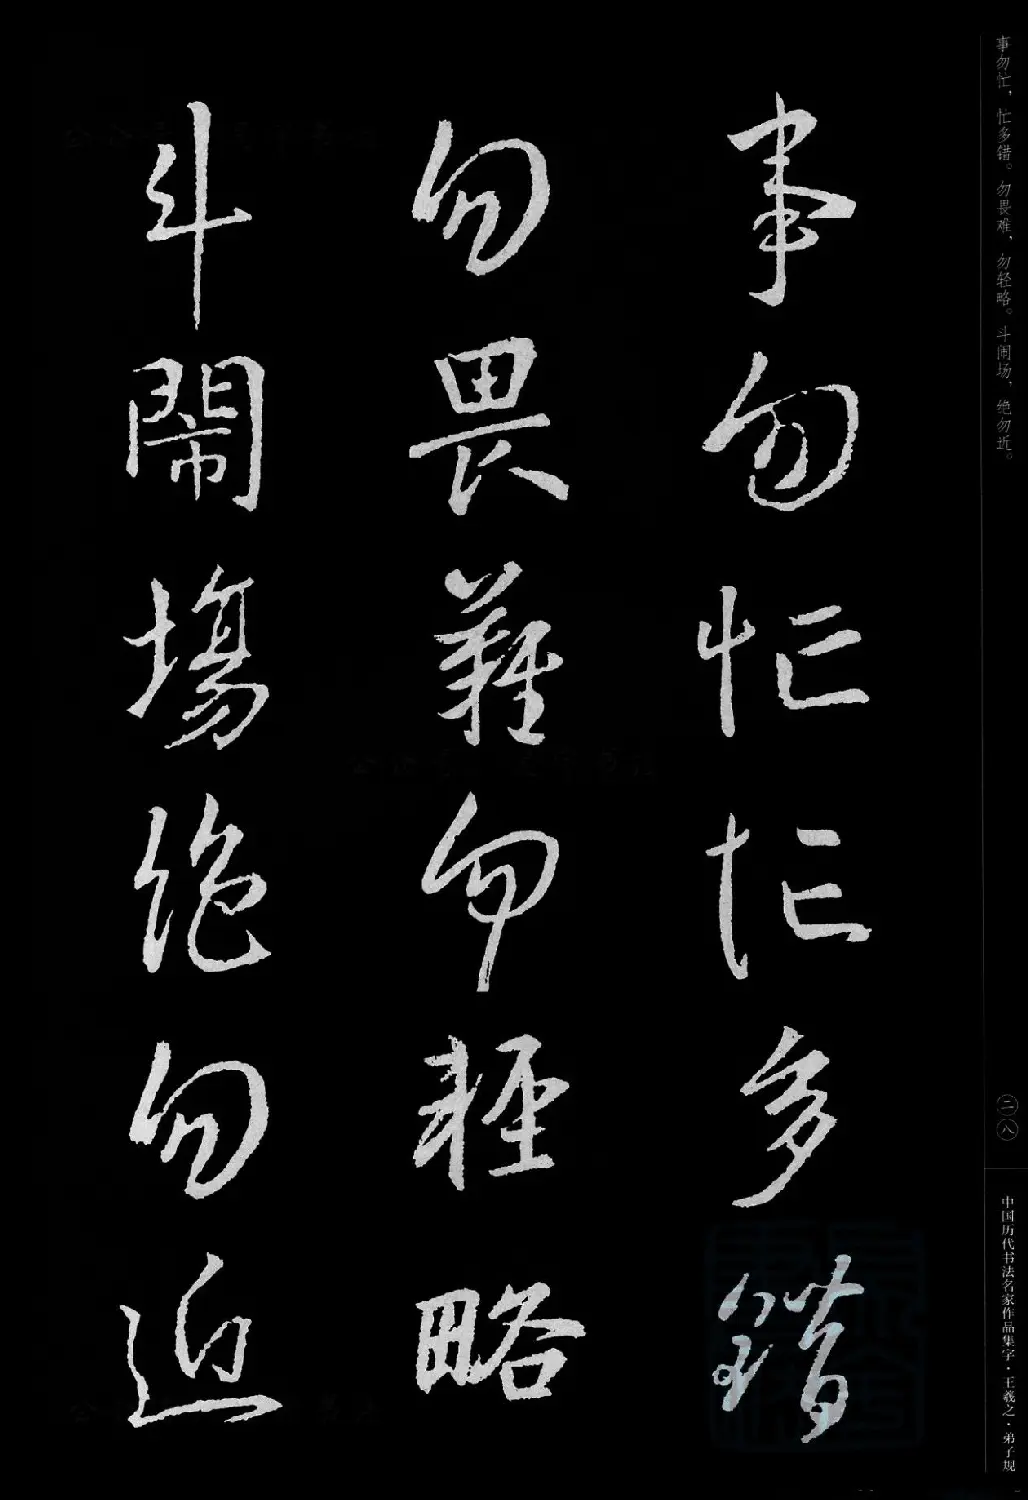 事勿忙，忙多错。勿畏难，勿轻略。斗闹场，绝勿近。
事勿忙忙多錯
勿畏難勿輕略
斗鬧場絕勿近
二八
中国历代书法名家作品集字·王羲之·弟子规